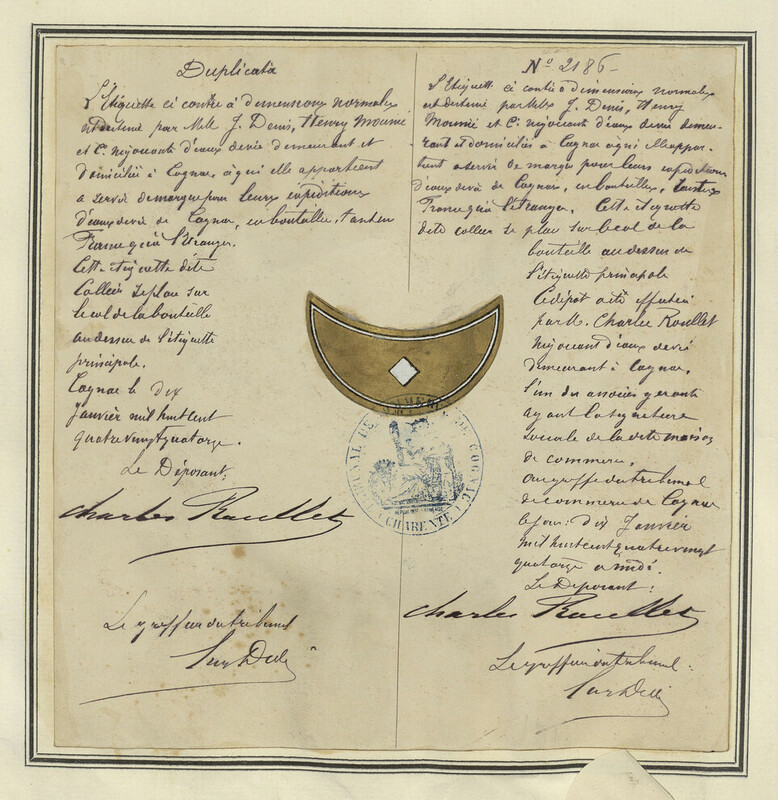 Duplicata
L'Etiquette ci contre à dimensions normales
est destiné par MM J. Denis, Henry Mounié
et Cⁱᵉ négociants d'eaux devie demeurant et
domiciliés à Cognac, à qui elle appartient
a servir de marque pour leurs expéditions
d'eaux devie de Cognac, en bouteilles, tant en
France qu'à l'étranger.
Cette étiquette dite
Collier se place sur
le col de la bouteille
au dessus de l'étiquette
principale.
Cognac le dix
Janvier mil huit cent
quatre vingt quatorze.
Le Déposant,
Charles Roullet
Le greffier du tribunal
Nº 2186
L'Etiquette ci contre à dimensions normales
est destiné par MM J. Denis, Henry
Mounié et Cⁱᵉ négociants d'eaux devie demeu-
rant et domiciliés à Cognac à qui elle appar-
tient a servir de marque pour leurs expéditions
d'eaux devie de Cognac, en bouteilles, tant en
France qu'à l'étranger. Cette étiquette
dite collier se place sur le col de la
bouteille au dessus de
l'étiquette principale
Ce dépôt a été effectué
par M. Charles Roullet
négociant d'eaux devie
demeurant à Cognac,
l'un des associés gérants
ayant la signature
sociale de la dite maison
de commerce,
au greffe du tribunal
de commerce de Cognac
le jour: dix Janvier
mil huit cent quatre vingt
quatorze a midi.
Le Déposant:
Charles Roullet
Le greffier du tribunal:
TRIBUNAL DE COMMERCE DE COGNAC
CHARENTE